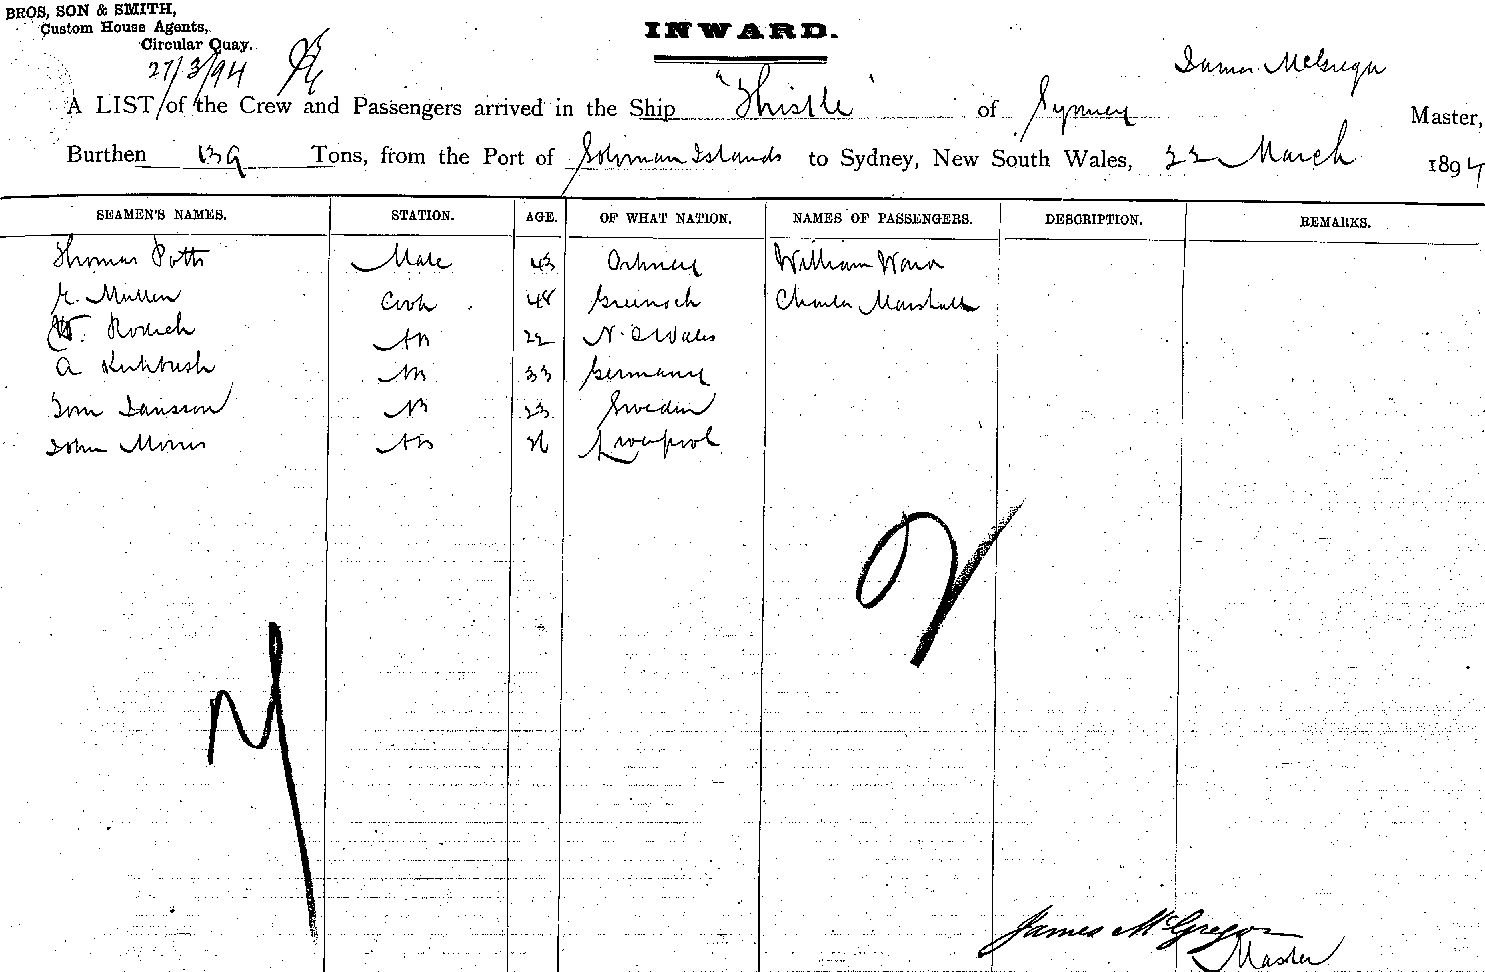 BROS, SON & SMITH,
Custom House Agents,
Circular Quay.
INWARD.
27/3/94
James McGregor
A LIST of the Crew and Passengers arrived in the Ship "Thistle" of Sydney Master,
Burthen 139 Tons, from the Port of Soloman Islands to Sydney, New South Wales, 22 March 1894
SEAMEN'S NAMES. STATION. AGE. OF WHAT NATION. NAMES OF PASSENGERS. DESCRIPTION. REMARKS.
Thomas Potts Mate 43 Orkney William Ward
Mullen Cook 48 Greenock Charles Marshall
W. AB 22 N. S Wales
A AB 33 Germany
Tom Jansson AB 23 Sweden
John Morris AB Liverpool
James McGregor
Master